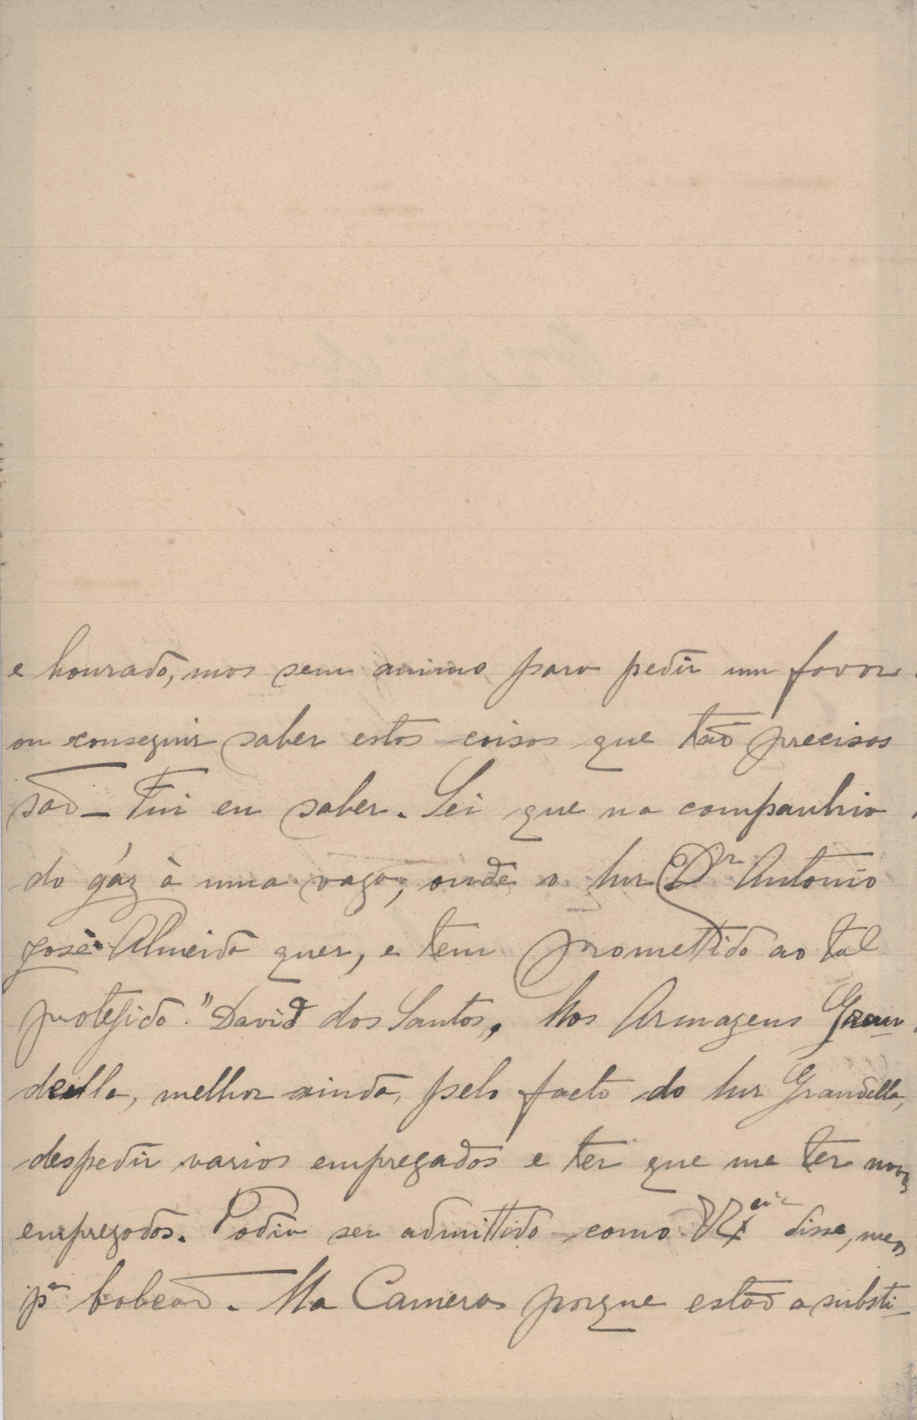 e honrado, mas sem animo para pedir um favor
ou conseguir saber estas coisas que tão precisas
são – Fui eu saber. Sei que na companhia
do gáz à uma vaga, onde o Snr Dr Antonio
José Almeida quer, e tem promettido ao tal
protegido "David dos Santos, Nos Armazens Gran-
della, melhor ainda, pelo facto do Snr Grandella,
despedir varios empregados e ter que me ter novos
empregados. Podia ser admittido como V. Excia disse, mas
pa cobrador. Na Camera porque estão a substi-